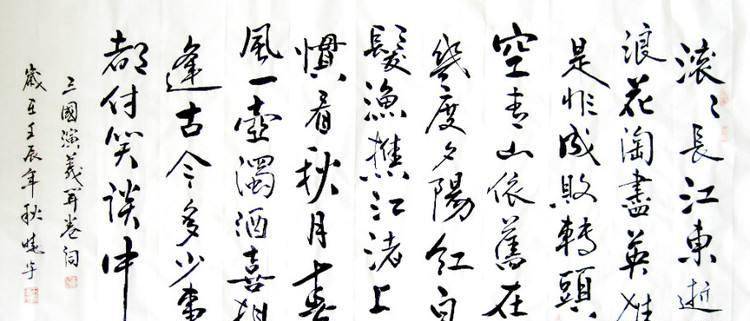 滚〻長江東逝
浪花淘盡英雄
是非成敗轉頭
空青山依舊在
幾度夕陽紅白
髮漁樵江渚上
慣看秋月春
風一壺濁酒喜相
逢古今多少事
都付笑談中
三國演義開卷詞
歲在壬辰年秋曉宇